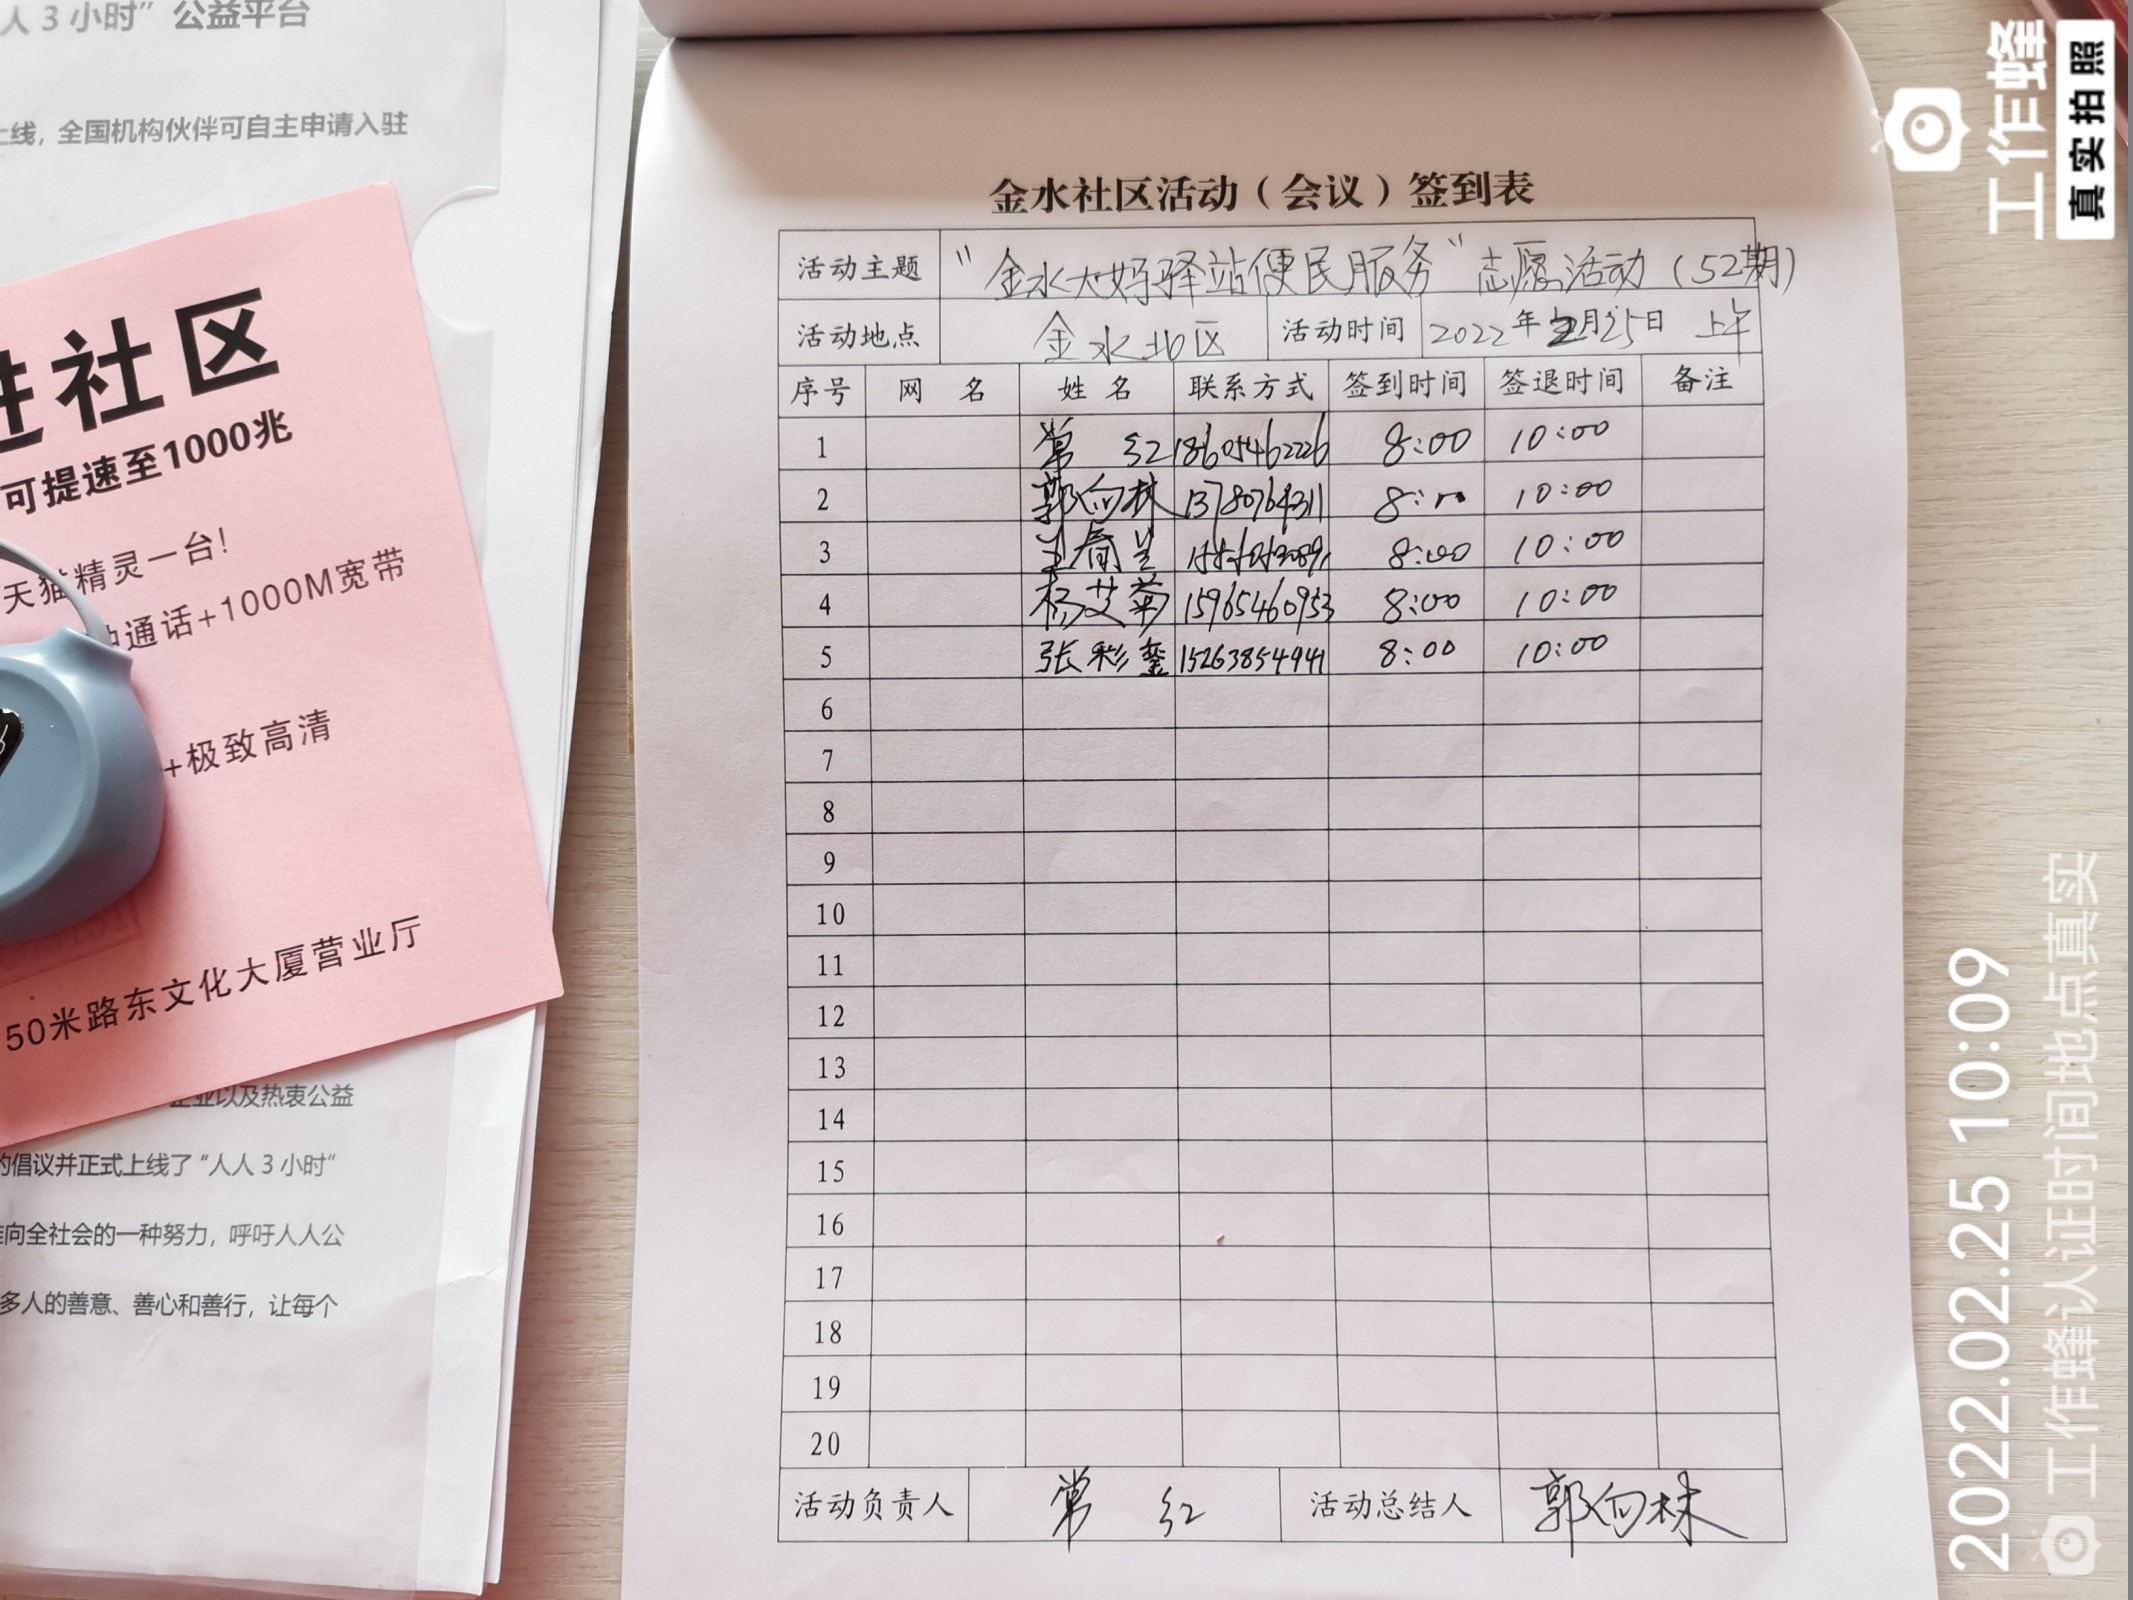 人 3 小时” 公益平台
上线, 全国机构伙伴可自主申请入驻
进社区
可提速至1000兆
天猫精灵一台!
通话+1000M宽带
+极致高清
50米路东文化大厦营业厅
企业以及热衷公益
的倡议并正式上线了 “人人 3 小时”
向全社会的一种努力, 呼吁人人公
多人的善意、善心和善行, 让每个
金水社区活动（会议）签到表
活动主题 “金水大妈驿站便民服务” 志愿活动 (52期)
活动地点 金水北区 活动时间 2022年2月25日 上午
序号 网 名 姓 名 联系方式 签到时间 签退时间 备注
1 常 红 18605462226 8:00 10:00
2 郭向林 13780764311 8:00 10:00
3 8:00 10:00
4 杨艾菊 15965460953 8:00 10:00
5 张彩銮 15263854941 8:00 10:00
6
7
8
9
10
11
12
13
14
15
16
17
18
19
20
活动负责人 常 红 活动总结人 郭向林
工作蜂
真实拍照
2022.02.25 10:09
工作蜂认证时间地点真实